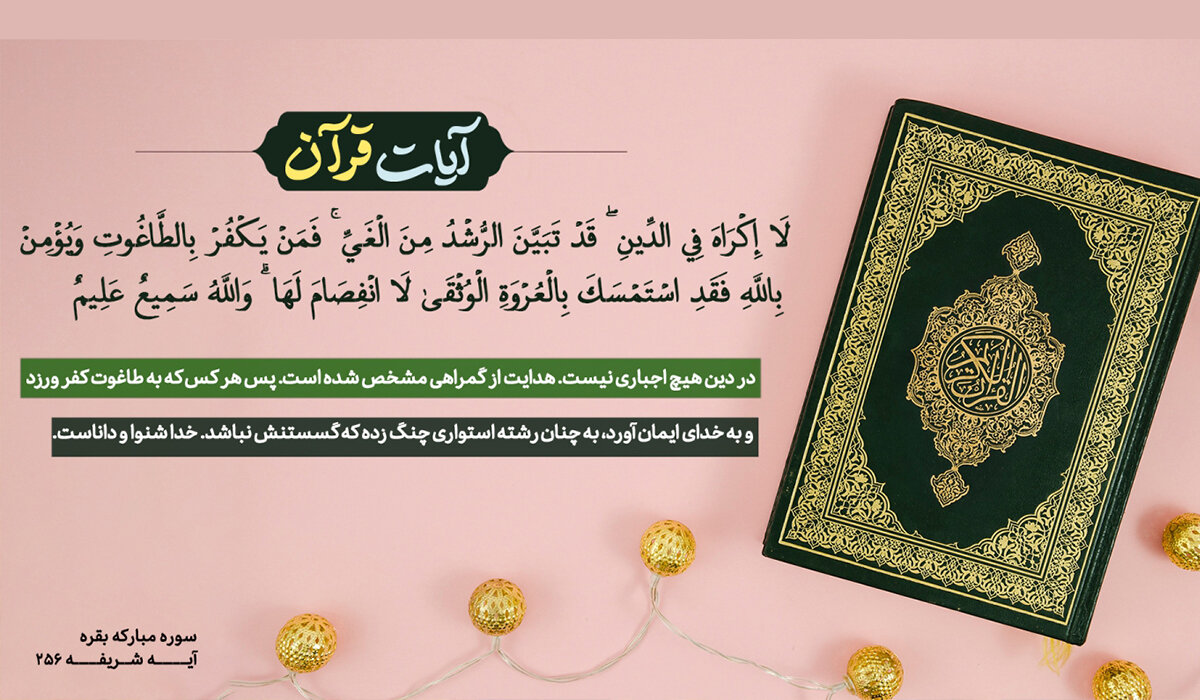 آیات قرآن
لَا إِكْرَاهَ فِي الدِّينِ ۖ قَدْ تَبَيَّنَ الرُّشْدُ مِنَ الْغَيِّ ۚ فَمَنْ يَكْفُرْ بِالطَّاغُوتِ وَيُؤْمِنْ
بِاللَّهِ فَقَدِ اسْتَمْسَكَ بِالْعُرْوَةِ الْوُثْقَىٰ لَا انْفِصَامَ لَهَا ۗ وَاللَّهُ سَمِيعٌ عَلِيمٌ
در دین هیچ اجباری نیست. هدایت از گمراهی مشخص شده است. پس هر کس که به طاغوت کفر ورزد
و به خدای ایمان آورد، به چنان رشته استواری چنگ زده که گسستنش نباشد. خدا شنوا و داناست.
القرآن الكريم
سوره مبارکه بقره
آیـــه شـریفـــه ۲۵۶